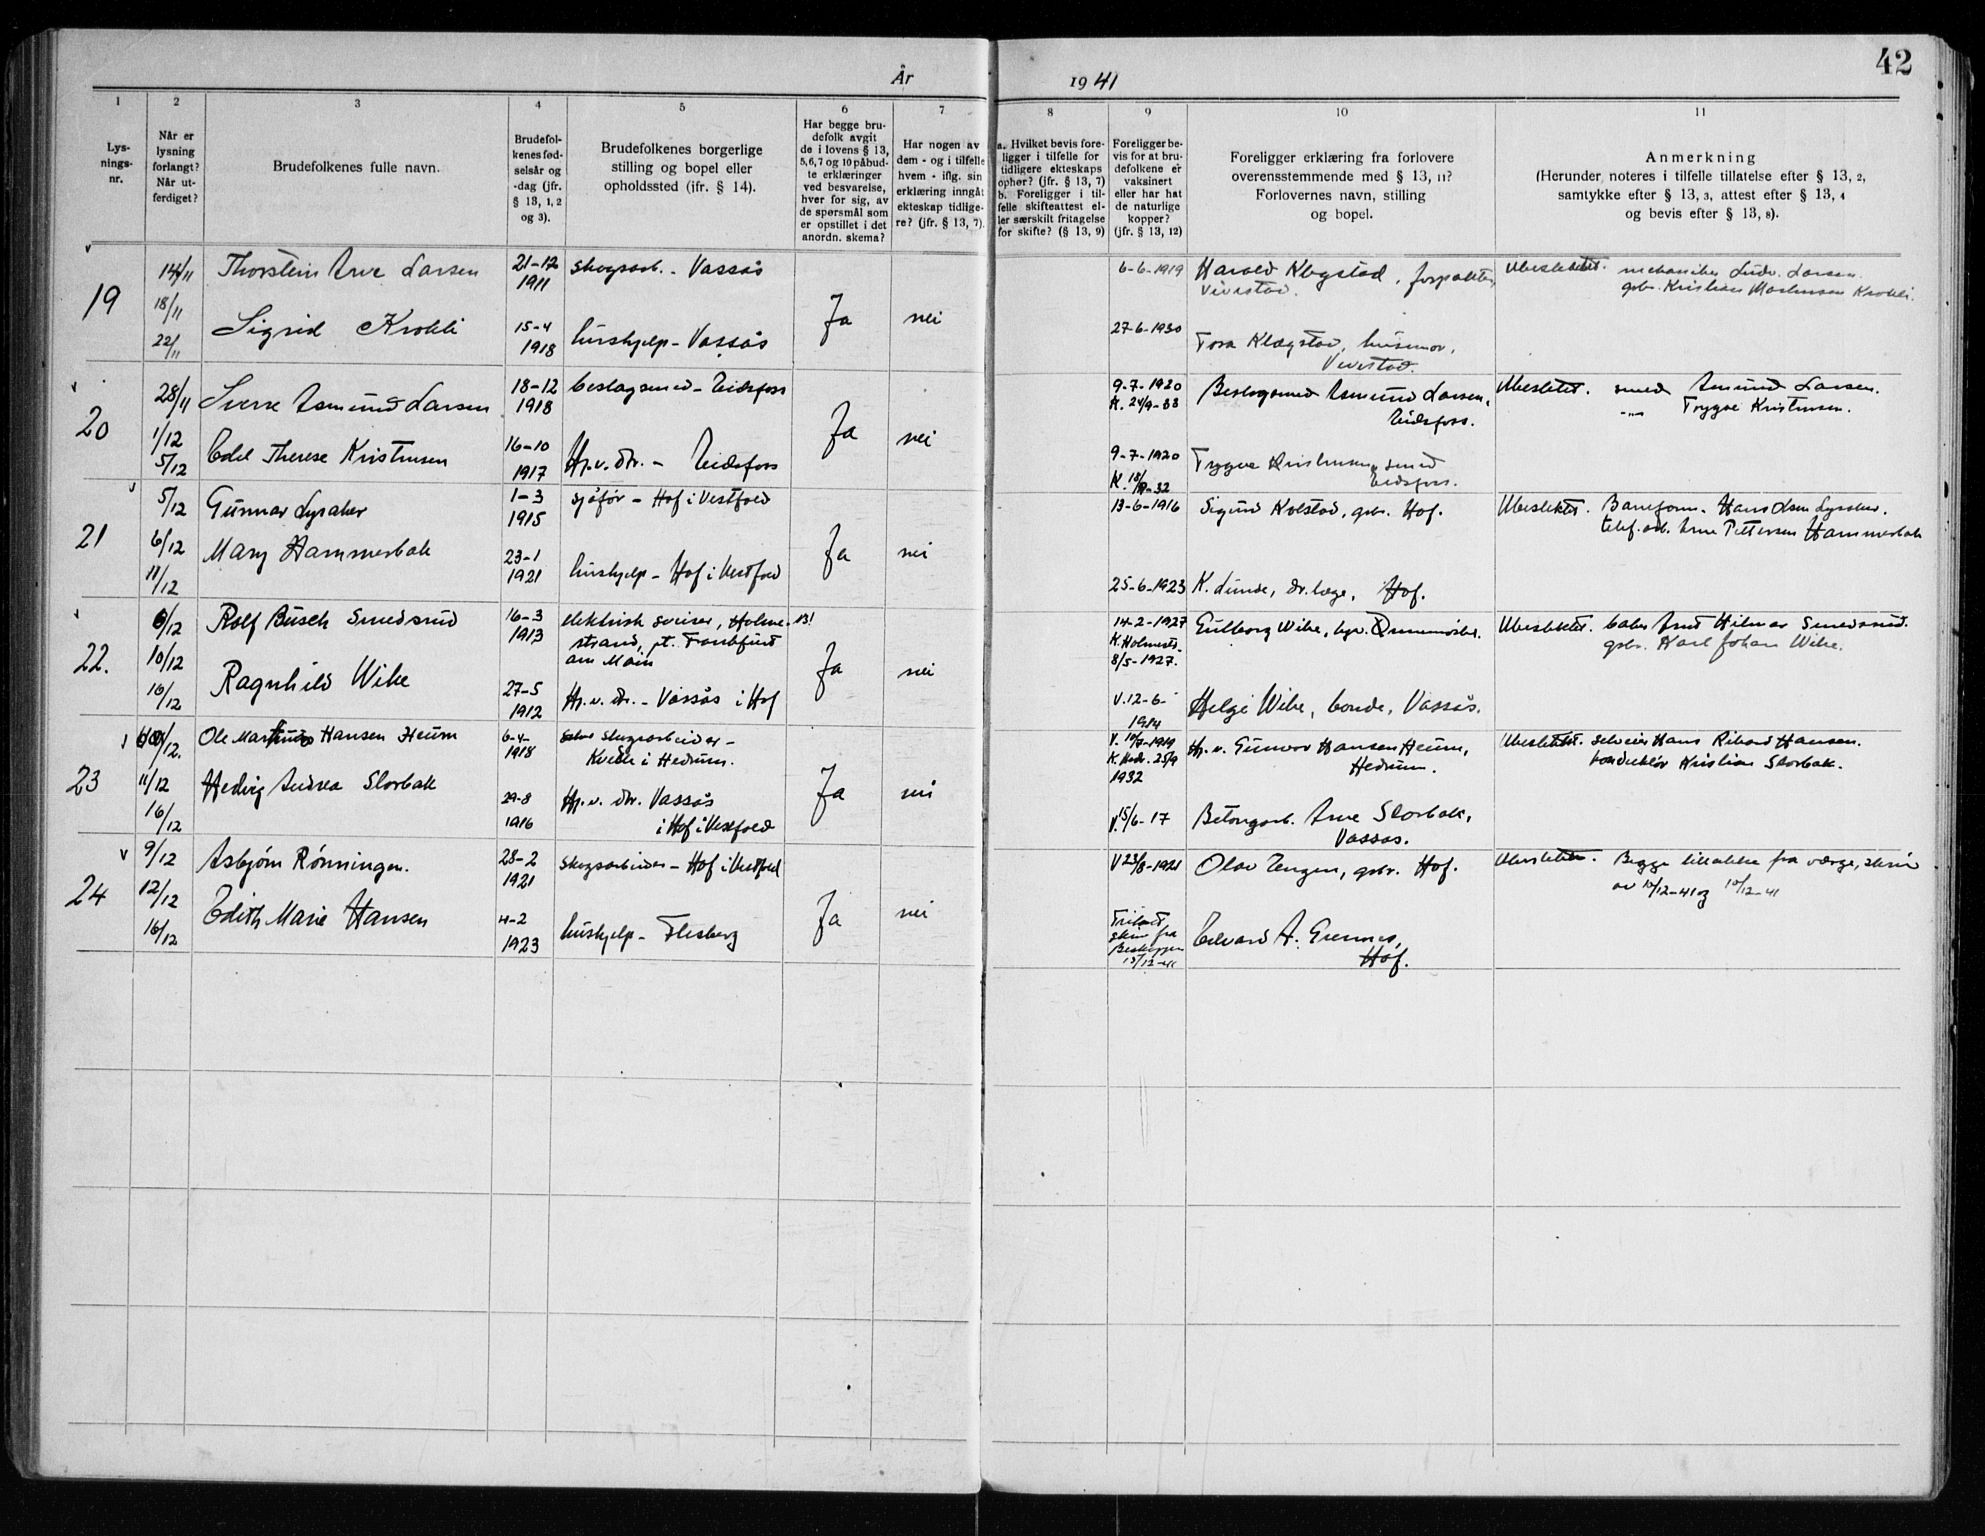 42
År 1941
1 2 3 4 5 6 7 8 9 10 11
Lys-
nings-
nr.
Når er
lysning
forlangt?
Når ut-
ferdiget?
Brudefolkenes fulle navn.
Brudefol-
kenes fød-
selsår og
-dag (jfr.
§ 13, 1, 2
og 3).
Brudefolkenes borgerlige
stilling og bopel eller
opholdssted (ifr. § 14).
Har begge bru-
defolk avgit
de i lovens § 13,
5,6,7 og 10 påbud-
te erklæringer
ved besvarelse,
hver for sig, av
de spørsmål som
er opstillet i det
anordn. skema?
Har nogen av
dem - og i tilfelle
hvem - iflg. sin
erklæring inngått
ekteskap tidlige-
re? (jfr. § 13, 7).
a. Hvilket bevis fore-
ligger i tilfelle for
tidligere ekteskaps
ophør? (jfr. § 13, 7)
b. Foreligger i til-
felle skifteattest el-
ler særskilt fritagelse
for skifte? (§ 13, 9)
Foreligger be-
vis for at bru-
defolkene er
vaksinert
eller har hat
de naturlige
kopper?
(jfr. § 13, 12)
Foreligger erklæring fra forlovere
overensstemmende med § 13, 11?
Forlovernes navn, stilling
og bopel.
Anmerkning
(Herunder noteres i tilfelle tillatelse efter § 13, 2,
samtykke efter § 13, 3, attest efter § 13, 4
og bevis efter § 13, 8).
19
14/11
18/11
22/11
Thorstein Arve Larsen
Sigrid Krokli
21-12
1911
15-4
1918
skogsarb. - Vassås
hushjelp - Vassås
Ja
nei
6-6-1919
27-6-1930
Harald Klegstad, forpakter,
Vivestad.
Tora Klægstad, husmor,
Vivestad.
Ubeslektet. mekaniker Ludv. Larsen.
gbr. Kristian Mathisen Krokli.
20
28/11
1/12
5/12
Sverre Asmund Larsen
Edel Therese Kristensen
18-12
1918
16-10
1917
beslagsmed - Eidsfoss
Hp.v.dtr. - Eidsfoss
Ja
nei
9-7-1920
K. 24/9-33
9-7-1920
Beslagsmed Asmund Larsen,
Eidsfoss.
Trygve Kristensen, smed
Eidsfoss.
Ubeslektet. smed Asmund Larsen.
-"- Trygve Kristensen.
21
5/12
6/12
11/12
Gunnar Lysaker
Mary Hammerbak
1-3
1915
23-1
1921
sjåfør - Hof i Vestfold
hushjelp - Hof i Vestfold
Ja
nei
13-6-1916
25-6-1923
Sigurd Kolstad, gbr. Hof.
K. Lunde, dr. læge, Hof.
Ubeslektet. Baneform. Hans Olsen Lysaker.
telef.arb. Arne Pettersen Hammerbak
22.
6/12
10/12
16/12
Rolf Busch Smedsrud
Ragnhild Wike
16-3
1913
27-5
1912
elektrisk sveiser, Holme-
strand, pt. Frankfurt
am Main
Hp.v.dtr. - Vassås i Hof
Ja
nei
14-2-1927
K. Holmestr.
8/5-1927.
V. 12-6-
1914
Gulborg Wike,
Helge Wike, bonde, Vassås.
Ubeslektet. baker Arnt Hilmar Smedsrud.
gbr. Karl Johan Wike.
23
11/12
16/12
Ole Martinius Hansen Heum
Hedvig Andrea Slorbak
6-4-
1918
29-8
1916
skogsarbeider -
Kvelde i Hedrum.
Hp.v.dtr. Vassås
i Hof i Vestfold
Ja
nei
K. Hedr. 25/9
1932
V. 15/6-17
Hp.v. Gunvor Hansen Heum,
Hedrum.
Betongarb. Arne Slorbak,
Vassås.
Ubeslektet. selveier Hans Rikard Hansen.
konduktør Kristian Slorbak.
24
9/12
12/12
16/12
Asbjørn Rønningen.
Edith Marie Hansen
28-2
1921
4-2
1923
skogsarbeider - Hof i Vestfold
hushjelp - Flesberg
Ja
nei
V 23/8-1921
skriv fra
Biskoppen
15/12-41
Olav Tengen, gbr. Hof.
Edvard A. Grennes,
Hof.
Ubeslektet. Begge tillatelse fra verge, skriv
av 10/12-41 og 10/12-41